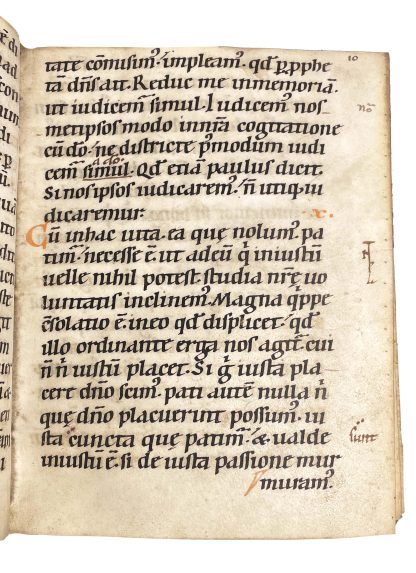 10
tate cōmisim᷒ / impleam᷒. qđ ꝑ ꝓphe
tā dn̄s ait. Reduc me inmemoriā.
ut iudicem᷒ simul. Iudicem᷒ nos
metipsos modo innr̄a cogitatione
cū do᷒ / ne districte ꝑmodum iudi
cem᷒ simul. Qđ etiā paulus dicit.
Si nos ipsos iudicarem᷒. n̄ utiq. iu
dicaremur. x.
Cū inhac uita. ea quę nolum᷒. pa
tim᷒ / necesse ē. ut adeū q̍ iniustū
uelle nihil potest. studia nr̄ę uo
luntatis inclinem᷒. Magna q̍ppe
ɔsolatio ē. ineo qđ displicet / qđ
illo ordinante erga nos agit᷒. cui
n̄ n̍ iustū placet. Si g̍ iusta pla
cere dn̄o scim᷒. pati autē nulla n̍
quę dn̄o placuerint possum᷒. iu
sta cuncta quę patim᷒ / & ualde
iniustū ē. si de iusta passione mur
muram᷒.
sunt